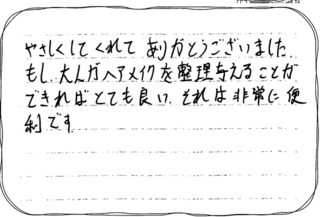 やさしくしてくれて ありがとうございました
もし 大人がヘアメイクを整理与えることが
できればとても良い、それは非常に便
利です